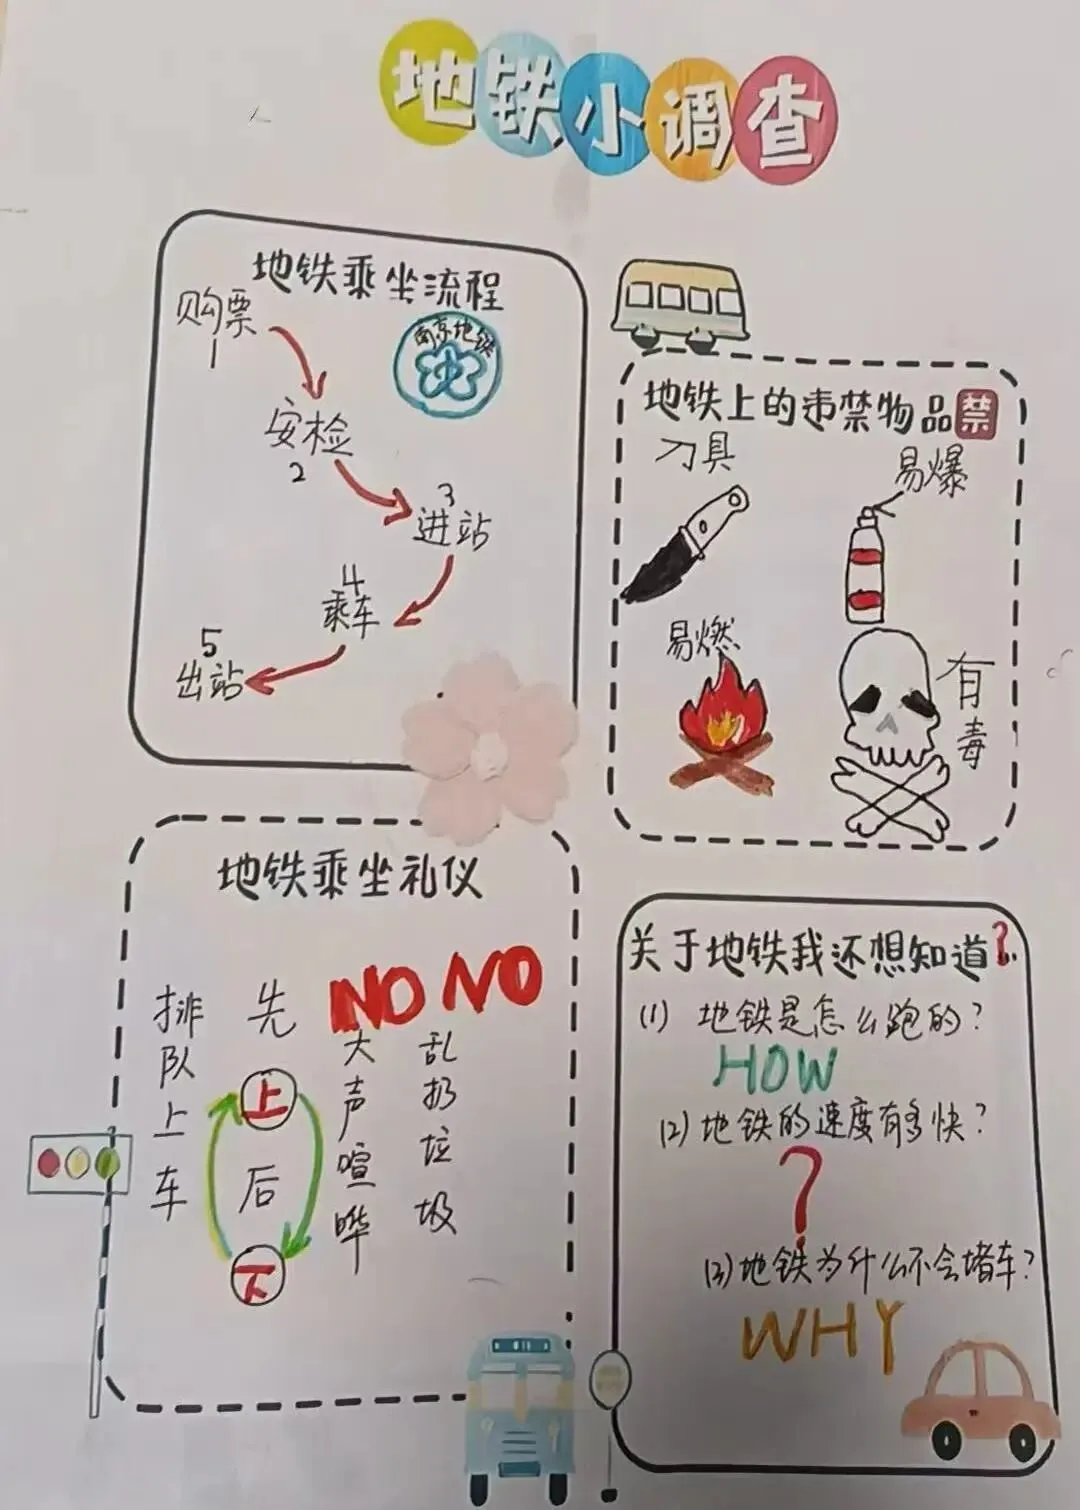 地铁小调查
地铁乘坐流程
购票
1
南京地铁
安检
2
3
进站
4
乘车
5
出站
地铁上的违禁物品禁
刀具
易爆
易燃
有毒
地铁乘坐礼仪
排队上车
先上后下
NO NO
大声喧哗
乱扔垃圾
关于地铁我还想知道?
(1) 地铁是怎么跑的?
HOW
(2) 地铁的速度有多快?
?
(3) 地铁为什么不会堵车?
WHY